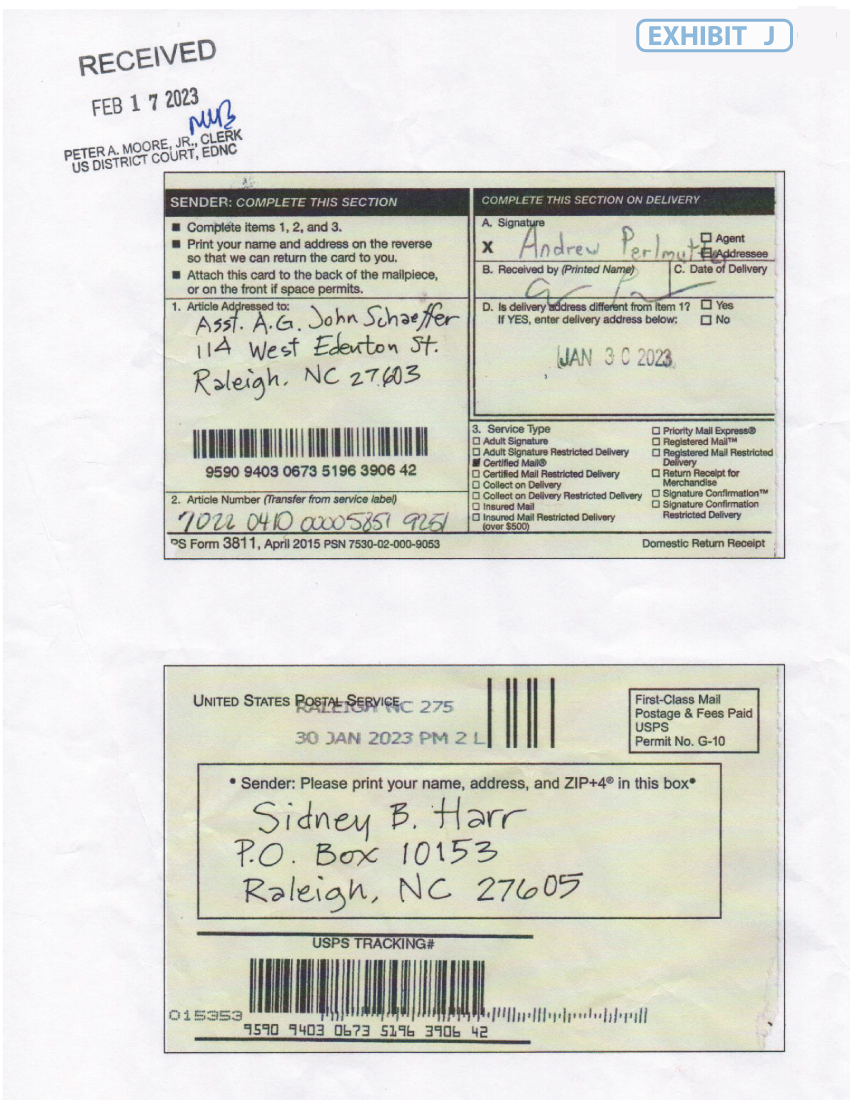 EXHIBIT J
RECEIVED
FEB 17 2023
PETER A. MOORE, JR., CLERK
US DISTRICT COURT, EDNC
SENDER: COMPLETE THIS SECTION
■ Complete items 1, 2, and 3.
■ Print your name and address on the reverse
so that we can return the card to you.
■ Attach this card to the back of the mailpiece,
or on the front if space permits.
1. Article Addressed to:
Asst. A.G. John Schaeffer
114 West Edenton St.
Raleigh, NC 27603
9590 9403 0673 5196 3906 42
2. Article Number (Transfer from service label)
7022 0410 0000 5851 9251
COMPLETE THIS SECTION ON DELIVERY
A. Signature
X Andrew Perlmutter
□ Agent
□ Addressee
B. Received by (Printed Name)
C. Date of Delivery
D. Is delivery address different from item 1? □ Yes
If YES, enter delivery address below: □ No
JAN 30 2023
3. Service Type
□ Adult Signature
□ Adult Signature Restricted Delivery
■ Certified Mail®
□ Certified Mail Restricted Delivery
□ Collect on Delivery
□ Collect on Delivery Restricted Delivery
□ Insured Mail
□ Insured Mail Restricted Delivery
(over $500)
□ Priority Mail Express®
□ Registered Mail™
□ Registered Mail Restricted
Delivery
□ Return Receipt for
Merchandise
□ Signature Confirmation™
□ Signature Confirmation
Restricted Delivery
PS Form 3811, April 2015 PSN 7530-02-000-9053
Domestic Return Receipt
UNITED STATES POSTAL SERVICE
RALEIGH NC 275
30 JAN 2023 PM 2 L
First-Class Mail
Postage & Fees Paid
USPS
Permit No. G-10
• Sender: Please print your name, address, and ZIP+4® in this box•
Sidney B. Harr
P.O. Box 10153
Raleigh, NC 27605
USPS TRACKING#
015353
9590 9403 0673 5196 3906 42